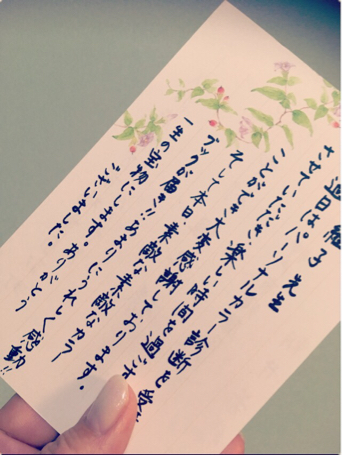 子 先生
過日はパーソナルカラー診断を受
させていただき、楽しい時間を過ごす
ことができ、大変感謝しております。
そして本日、素敵なカラー
ブックが届き!!あまりにうれしく感動!!
一生の宝物にします。ありがとう
ございました。